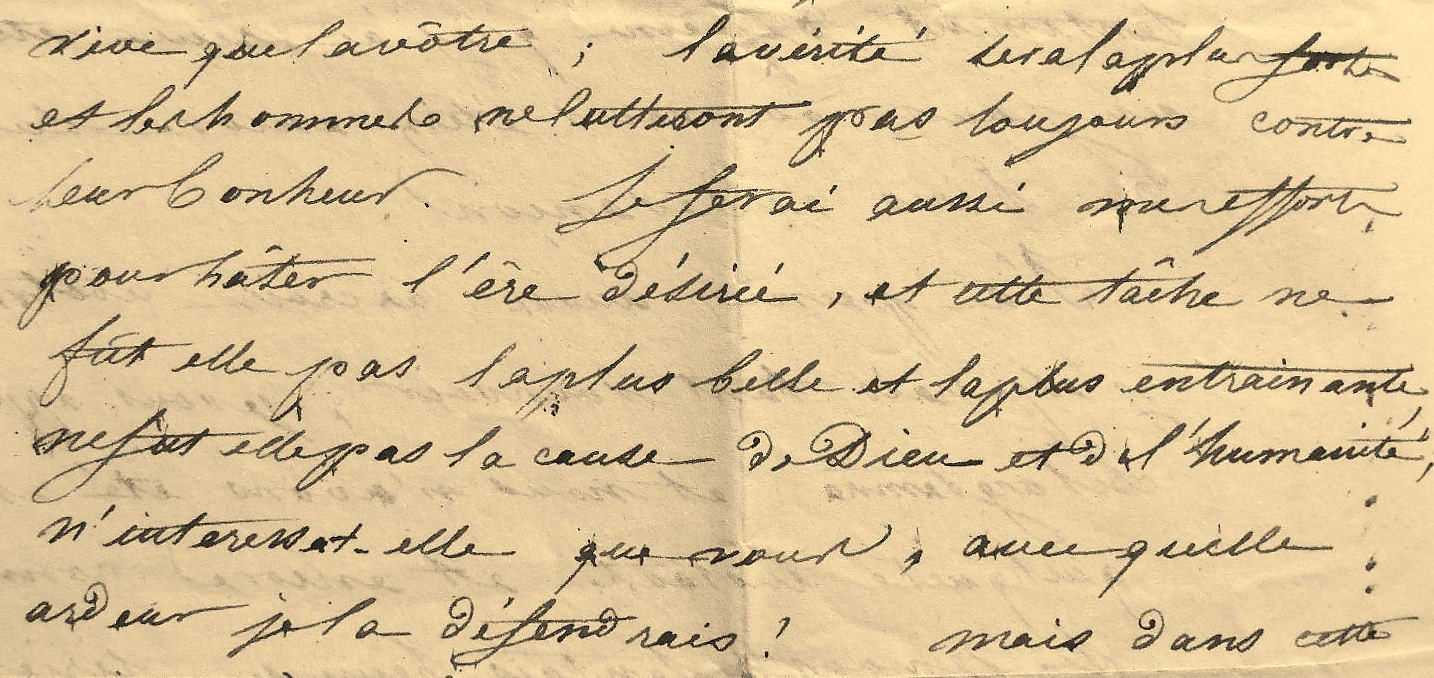 vive que la vôtre ; la vérité sera la plus forte
et les hommes ne lutteront pas toujours contre
leur bonheur. Je ferai aussi mes efforts
pour hâter l'ère désirée, et cette tâche ne
fût elle pas la plus belle et la plus entrainante,
ne fut elle pas la cause de Dieu et de l'humanité,
n'interessat-elle que vous, avec quelle
ardeur je la défendrais ! mais dans cette